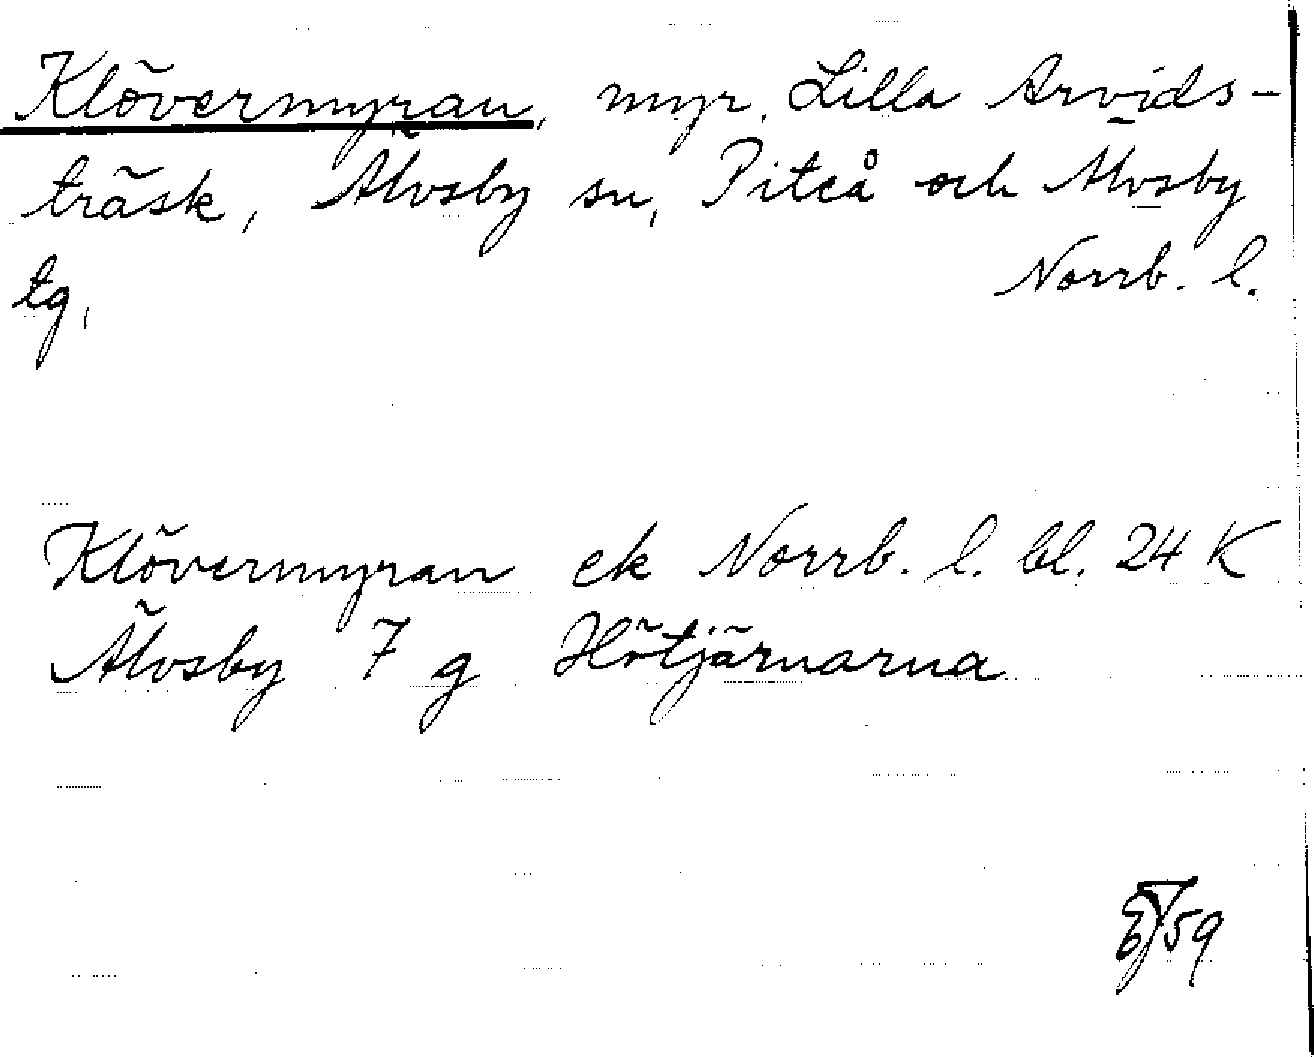 Klövermyran, myr, Lilla Arvids-
träsk, Älvsby sn, Piteå och Älvsby
tg,
Norrb. l.
Klövermyran ek Norrb. l. bl. 24 K
Älvsby 7 g Hötjärnarna
59